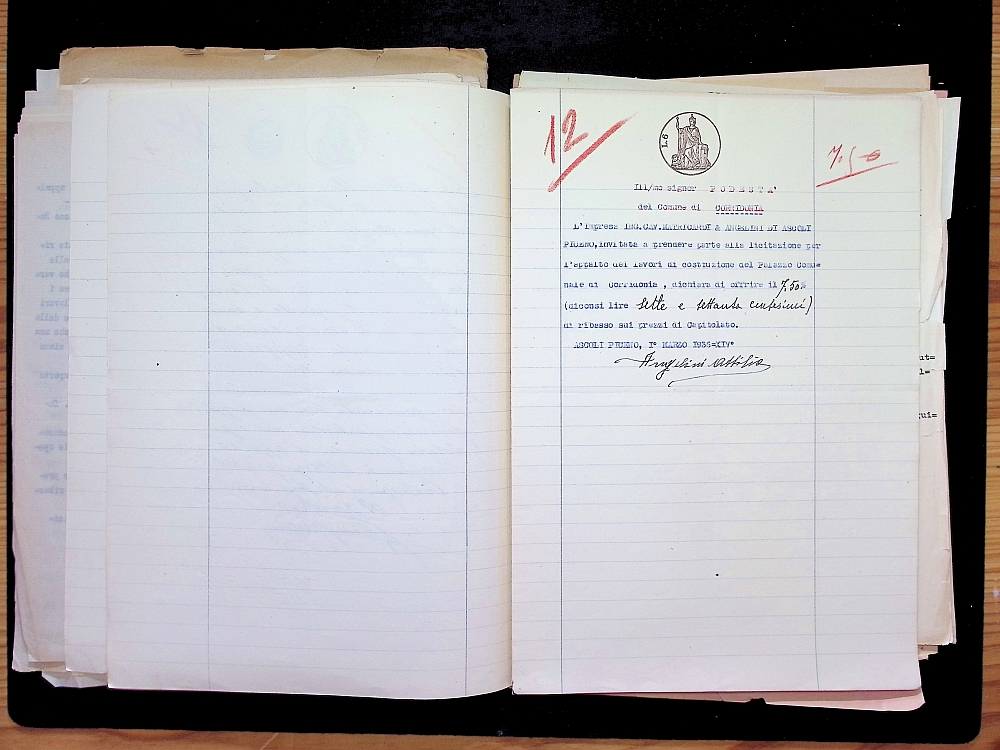 12
L.6
7.50
Ill/mo signor PODESTA'
del Comune di CORRIDONIA
L'Impresa ING.CAV.MATRICARDI & ANGELINI DI ASCOLI
PICENO,invitata a prendere parte alla licitazione per
l'appalto dei lavori di costruzione del Palazzo Comu=
nale di Corridonia , dichiara di offrire il 7,50%
(diconsi lire sette e settanta centesimi)
di ribasso sui prezzi di Capitolato.
ASCOLI PICENO, I° MARZO 1936=XIV°
Angelini Attilio
ut=
l=
gui=